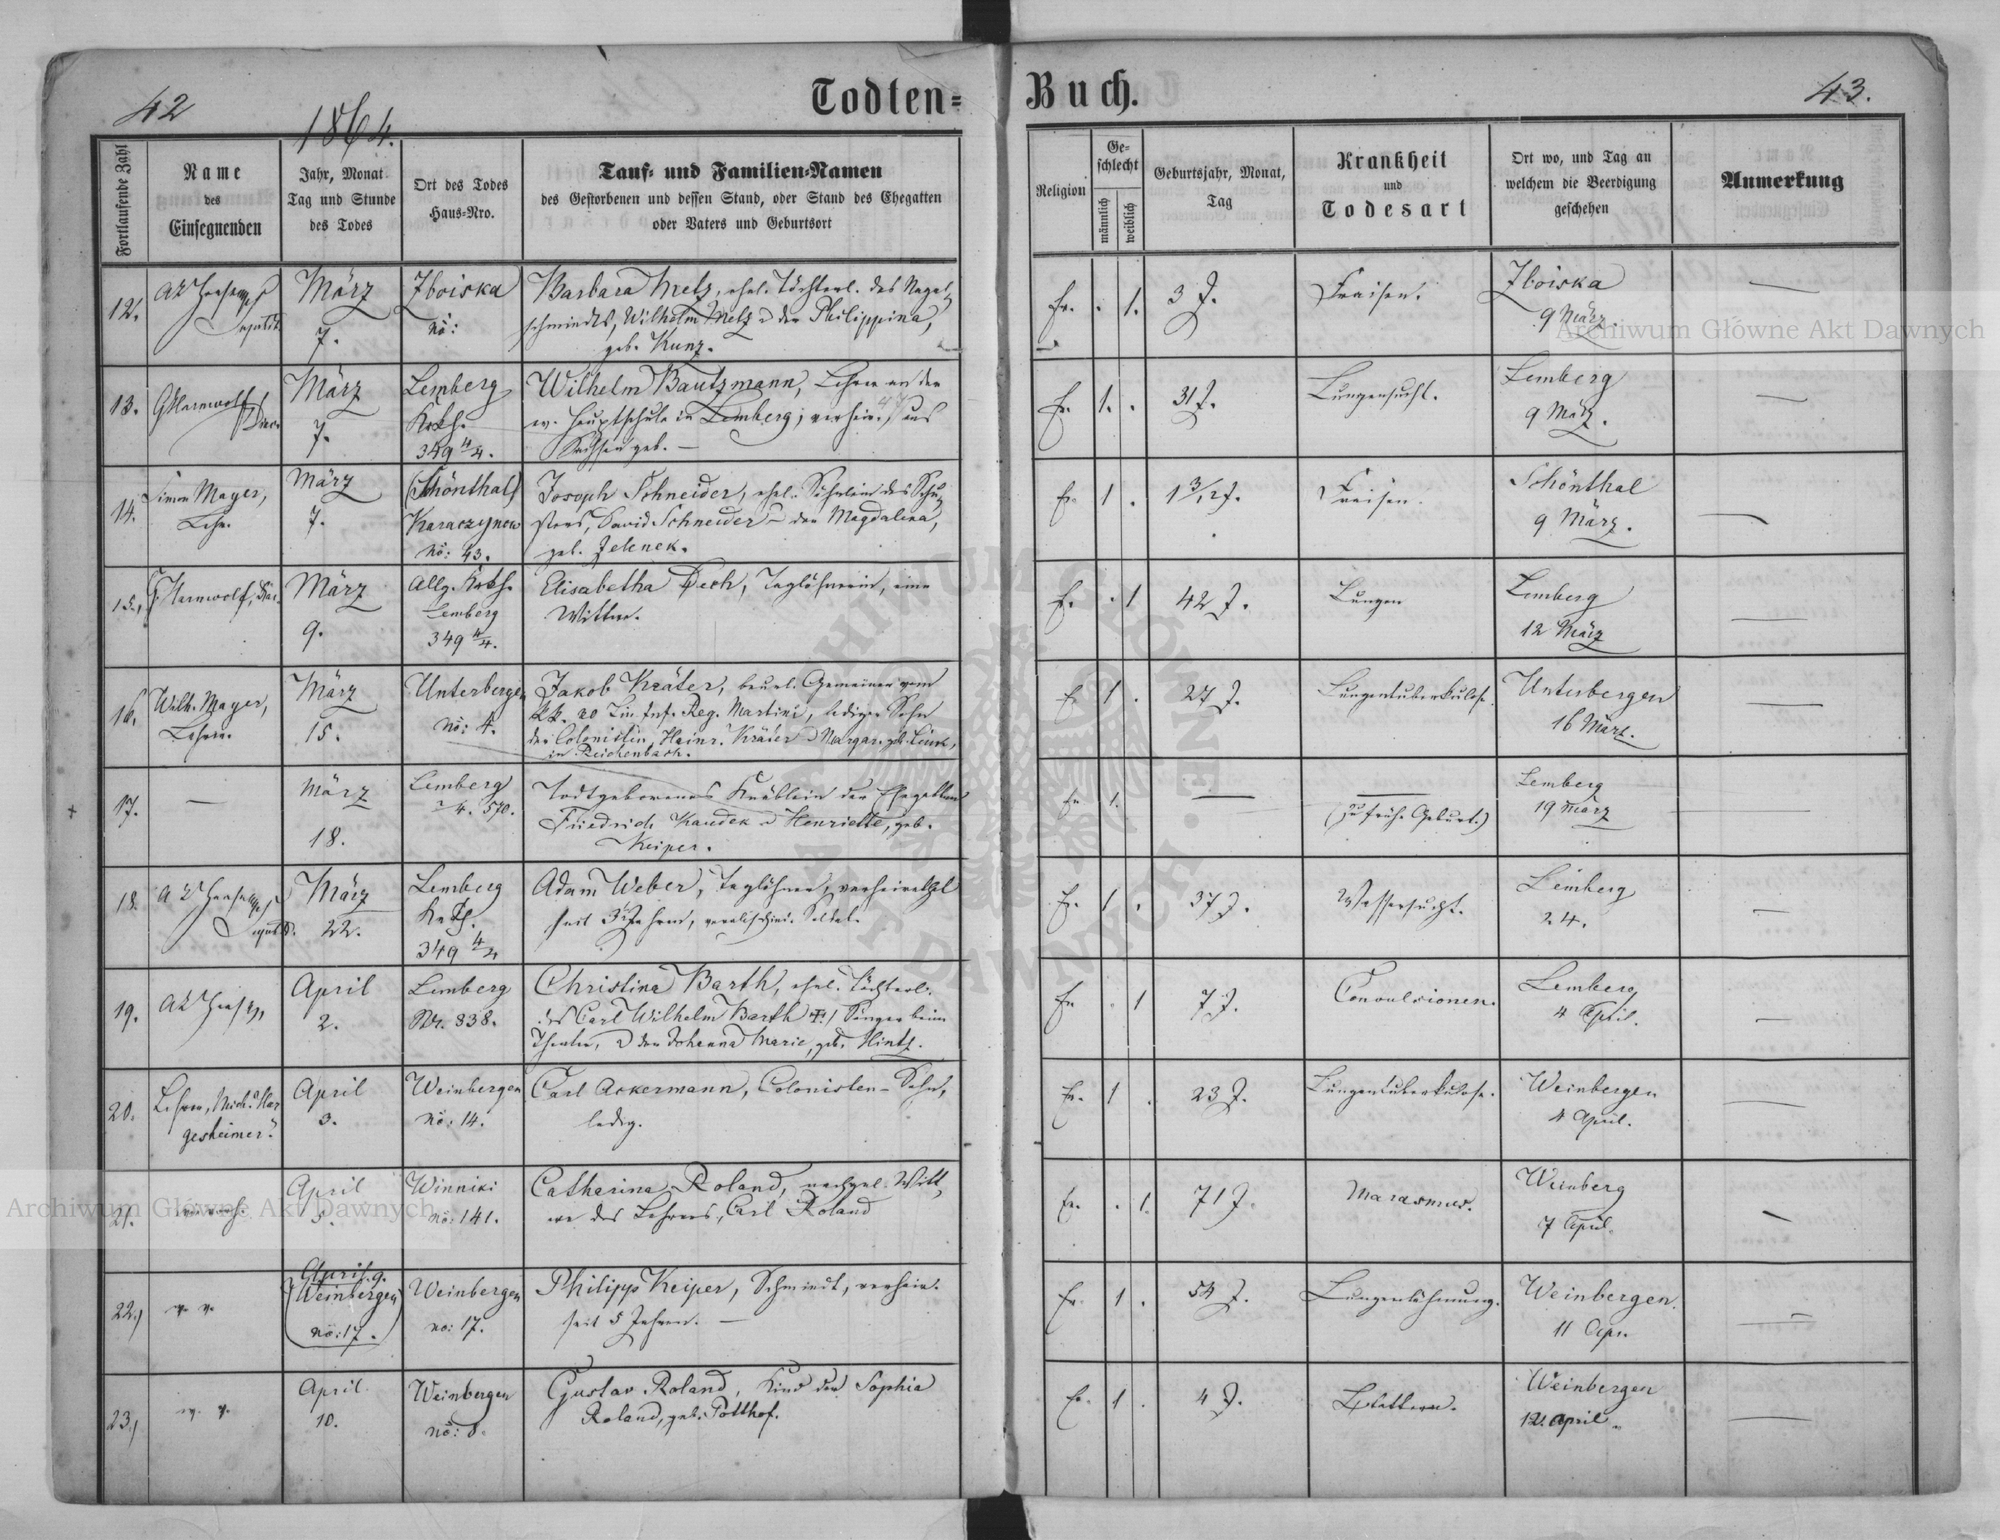 42
1864.
Todten=
Buch.
43.
Fortlaufende Zahl
Name
des
Einsegnenden
Jahr, Monat
Tag und Stunde
des Todes
Ort des Todes
Haus-Nro.
Tauf- und Familien-Namen
des Gestorbenen und dessen Stand, oder Stand des Ehegatten
oder Vaters und Geburtsort
Religion
Ge-
schlecht
männlich
weiblich
Geburtsjahr, Monat,
Tag
Krankheit
und
Todesart
Ort wo, und Tag an
welchem die Beerdigung
geschehen
Anmerkung
12.
März
7.
Zboiska
No:
Barbara Metz, ehel. Töchterl. des Nagel-
schmiedes, Wilhelm Metz u der Philippina,
geb. Kunz.
Ev. . 1.
3 J.
Fraisen.
Zboiska
9 März.
—
13.
G Harnwolf
März
7.
Lemberg
Krkh.
349 4/4.
Wilhelm Bautzmann, Lehrer an der
ev. Hauptschule in Lemberg; verheir., aus
Sachsen geb. —
Ev. 1. .
31 J.
Lungensucht.
Lemberg
9 März.
—
14.
Simon Mayer,
Lehr.
März
7.
(Schönthal)
Karaczynow
No: 43.
Joseph Schneider, ehel. Söhnlein des Schu-
sters, David Schneider u der Magdalena,
geb. Jelenek.
Ev. 1 .
1 3/12 J.
Fraisen.
Schönthal
9 März.
—
15.,
G. Harnwolf,
März
9.
Allg. Krkh.
Lemberg
349 4/4.
Elisabetha Pech, Taglöhnerin, eine
Wittwe.
Ev. . 1
42 J.
Lungen
Lemberg
12 März
—
16.
Wilh. Mayer,
Lehrer.
März
15.
Unterbergen
No: 4.
Jakob Kräter, beurl. Gemeiner vom
kk. 20 Lin. Inf. Reg. Martini, lediger Sohn
des Colonisten, Heinr. Kräter u Margar. geb.
in Reichenbach.
Ev 1 .
27 J.
Lungentuberkulose.
Unterbergen
16 März.
—
17.
—
März
18.
Lemberg
4. 570.
Todtgeborenes Knäblein der Ehegatten
Friedrich Kaudek u Henriette, geb.
Keiper.
Ev 1.
—
(zu frühe Geburt.)
Lemberg
19 März
—
18.
März
22.
Lemberg
Krkh.
349 4/4
Adam Weber, Taglöhner, verheirathet
seit 3 Jahren, Soldat.
Ev. 1 .
37 J.
Wassersucht.
Lemberg
24.
—
19.
April
2.
Lemberg
Nr. 838.
Christina Barth, ehel. Töchterl.
des Carl Wilhelm Barth Sänger beim
Theater, u der Johanna Marie, geb. Hintz.
Ev . 1
7 J.
Convulsionen.
Lemberg
4 April.
—
20.
Lehrer, Mich. Har
gesheimer.
April
3.
Weinbergen
No: 14.
Carl Ackermann, Colonisten-Sohn,
ledig.
Ev. 1 .
23 J.
Lungentuberkulose.
Weinbergen
4 April.
—
21.
April
5.
Winniki
No: 141.
Catharina Roland, nachgel. Witt,
we des Lehrers, Carl Roland
Ev. . 1.
71 J.
Marasmus.
Weinberg
7 April.
—
22.)
April. 9.
(Weinbergen
No: 17.)
Weinbergen
No: 17.
Philipp Keiper, Schmiedt, verheir.
seit 5 Jahren. —
Ev. 1 .
54 J.
Lungenlähmung.
Weinbergen.
11 Apr.
—
23.)
April.
10.
Weinbergen
No: 8.
Gustav Roland, Kind der Sophia
Roland, geb. Potthof.
Ev. 1 .
4 J.
Blattern.
Weinbergen
12. April.
—
Archiwum Główne Akt Dawnych
Archiwum Główne Akt Dawnych
ARCHIWUM GŁÓWNE AKT DAWNYCH